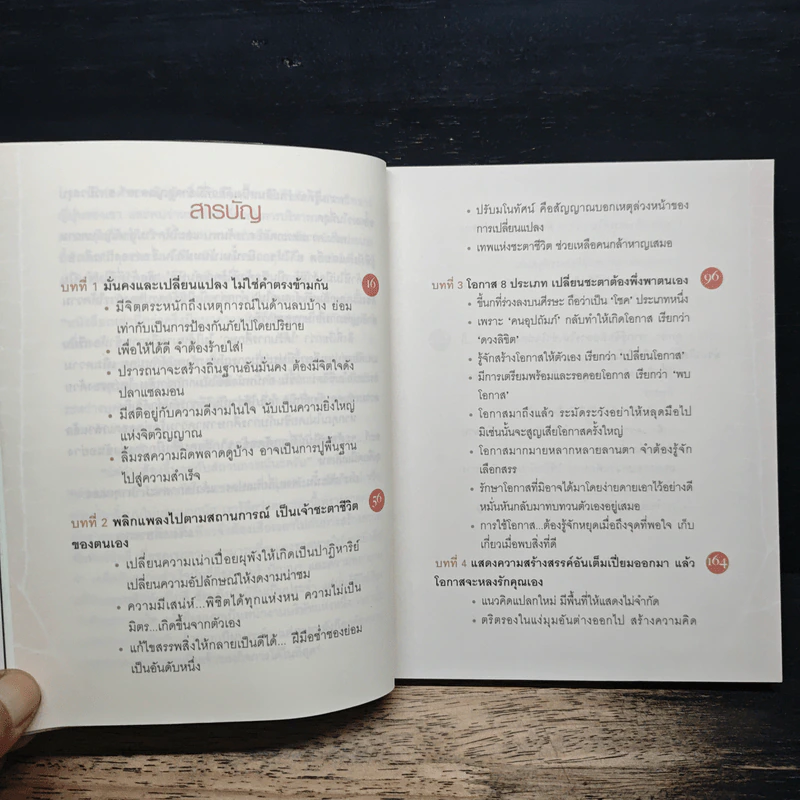 สารบัญ
บทที่ 1 มั่นคงและเปลี่ยนแปลง ไม่ใช่คำตรงข้ามกัน 16
• มีจิตตระหนักถึงเหตุการณ์ในด้านลบบ้าง ย่อม
เท่ากับเป็นการป้องกันภัยไปโดยปริยาย
• เพื่อให้ได้ดี จำต้องร้ายใส่!
• ปรารถนาจะสร้างถิ่นฐานอันมั่นคง ต้องมีจิตใจดัง
ปลาแซลมอน
• มีสติอยู่กับความดีงามในใจ นับเป็นความยิ่งใหญ่
แห่งจิตวิญญาณ
• ลิ้มรสความผิดพลาดดูบ้าง อาจเป็นการปูพื้นฐาน
ไปสู่ความสำเร็จ
บทที่ 2 พลิกแพลงไปตามสถานการณ์ เป็นเจ้าชะตาชีวิต 56
ของตนเอง
• เปลี่ยนความเน่าเปื่อยผุพังให้เกิดเป็นปาฏิหาริย์
เปลี่ยนความอัปลักษณ์ให้งดงามน่าชม
• ความมีเสน่ห์...พิชิตได้ทุกแห่งหน ความไม่เป็น
มิตร...เกิดขึ้นจากตัวเอง
• แก้ไขสรรพสิ่งให้กลายเป็นดีได้... ฝีมือซ่ำซองย่อม
เป็นอันดับหนึ่ง
• ปรับมโนทัศน์ คือสัญญาณบอกเหตุล่วงหน้าของ
การเปลี่ยนแปลง
• เทพแห่งชะตาชีวิต ช่วยเหลือคนกล้าหาญเสมอ
บทที่ 3 โอกาส 8 ประเภท เปลี่ยนชะตาต้องพึ่งพาตนเอง 96
• ขี้นกที่ร่วงลงบนศีรษะ ถือว่าเป็น 'โชค' ประเภทหนึ่ง
• เพราะ 'คนอุปถัมภ์' กลับทำให้เกิดโอกาส เรียกว่า
'ดวงลิขิต'
• รู้จักสร้างโอกาสให้ตัวเอง เรียกว่า 'เปลี่ยนโอกาส'
• มีการเตรียมพร้อมและรอคอยโอกาส เรียกว่า 'พบ
โอกาส'
• โอกาสมาถึงแล้ว ระมัดระวังอย่าให้หลุดมือไป
มิเช่นนั้นจะสูญเสียโอกาสครั้งใหญ่
• โอกาสมากมายหลากหลายลานตา จำต้องรู้จัก
เลือกสรร
• รักษาโอกาสที่มิอาจได้มาโดยง่ายดายเอาไว้อย่างดี
หมั่นหันกลับมาทบทวนตัวเองอยู่เสมอ
• การใช้โอกาส...ต้องรู้จักหยุดเมื่อถึงจุดที่พอใจ เก็บ
เกี่ยวเมื่อพบสิ่งที่ดี
บทที่ 4 แสดงความสร้างสรรค์อันเต็มเปี่ยมออกมา แล้ว 164
โอกาสจะหลงรักคุณเอง
• แนวคิดแปลกใหม่ มีพื้นที่ให้แสดงไม่จำกัด
• ตริตรองในแง่มุมอันต่างออกไป สร้างความคิด